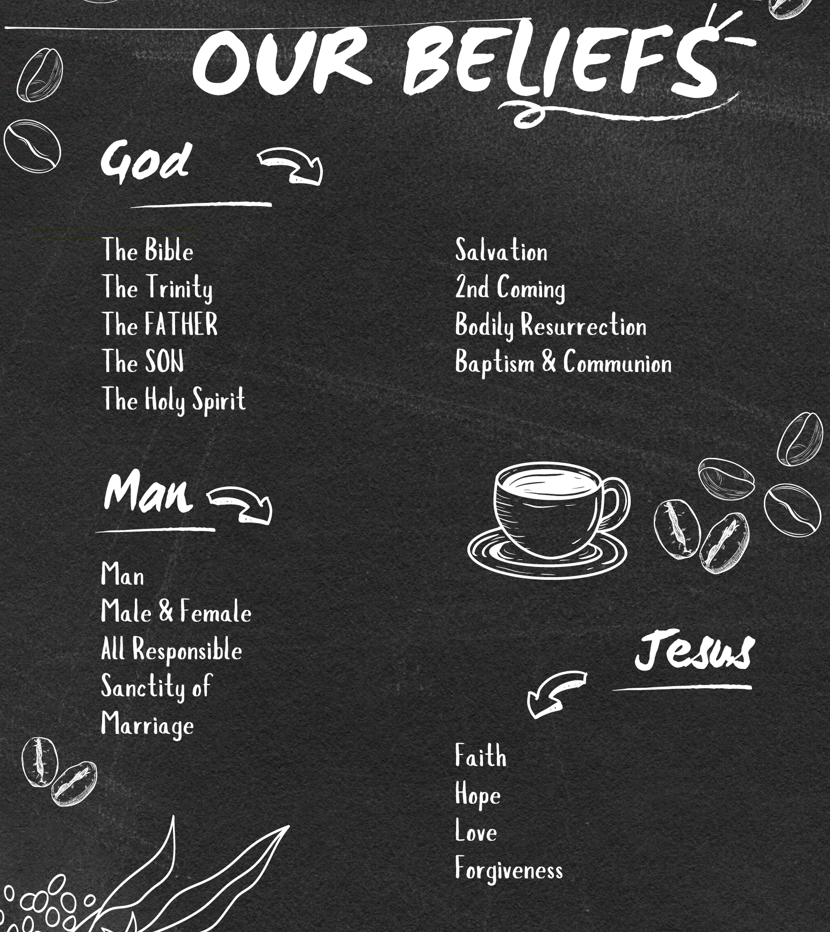 OUR BELIEFS
God
The Bible
The Trinity
The FATHER
The SON
The Holy Spirit
Salvation
2nd Coming
Bodily Resurrection
Baptism & Communion
Man
Man
Male & Female
All Responsible
Sanctity of
Marriage
Jesus
Faith
Hope
Love
Forgiveness